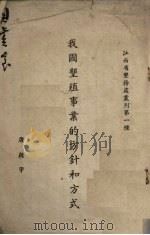 江西省墾務處叢刊第一種
我國墾殖事業的方針和方式
唐啓宇